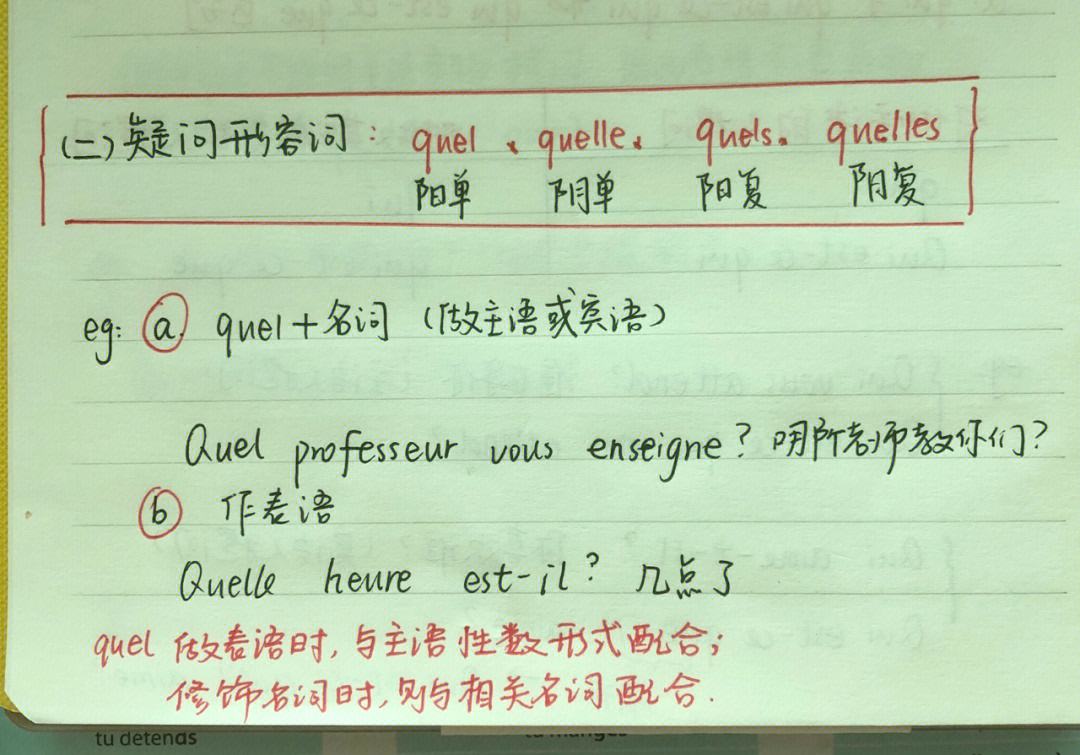 (二)疑问形容词： quel、quelle、quels、quelles
阳单 阴单 阳复 阴复
eg: a. quel+名词（做主语或宾语）
Quel professeur vous enseigne？哪所老师教你们？
b 作表语
Quelle heure est-il？ 几点了
quel 做表语时，与主语性数形式配合；
修饰名词时，则与相关名词配合.
tu détends
tu manges